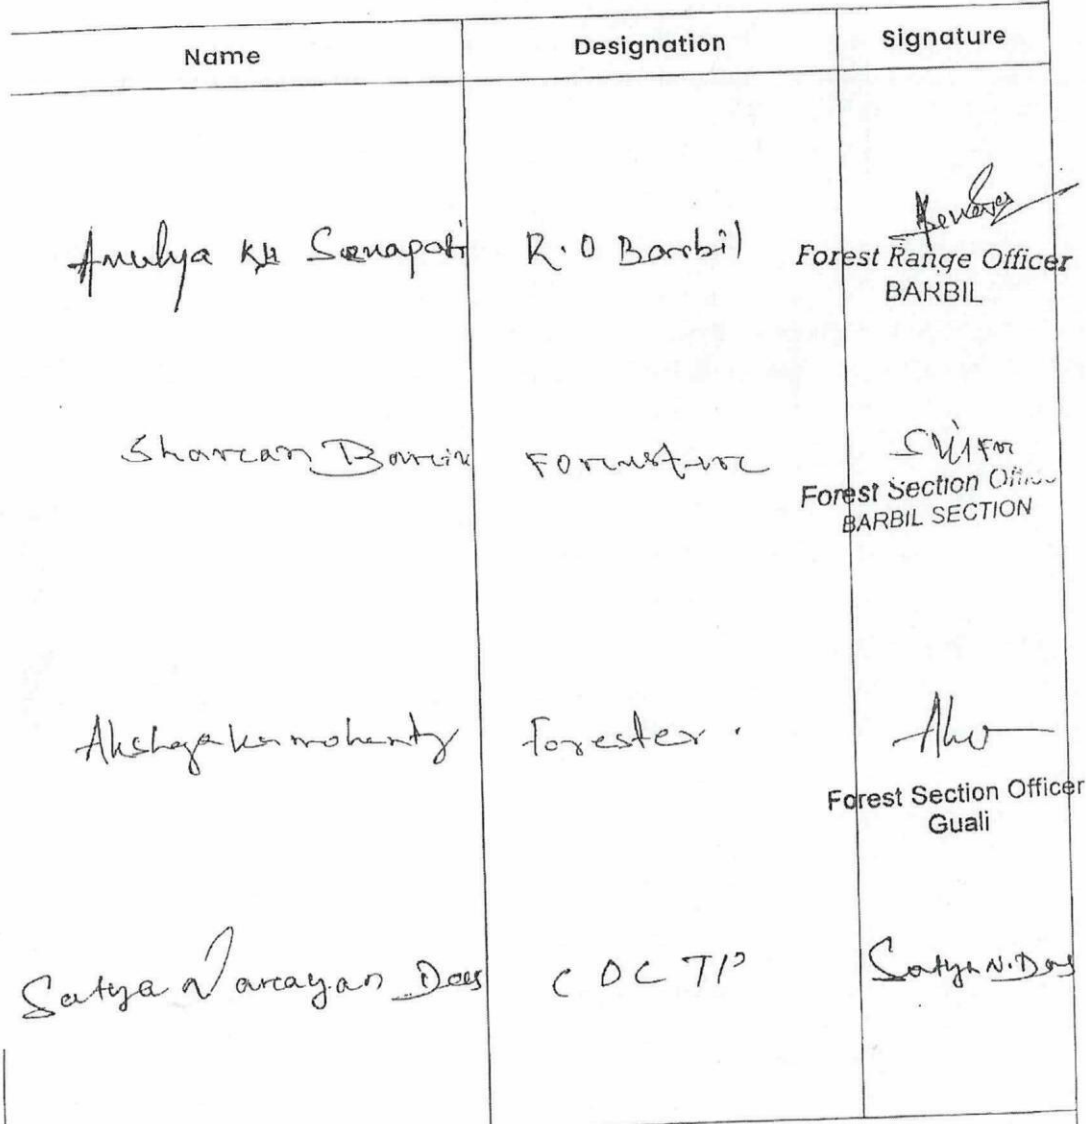 Name Designation Signature
Amulya Kr Senapati R.O Barbil
Forest Range Officer
BARBIL
Sharcan
Forest Section Office
BARBIL SECTION
Akshaya kr mohanty Forester.
Forest Section Officer
Guali
Satya Narayan Das Satya N. Das